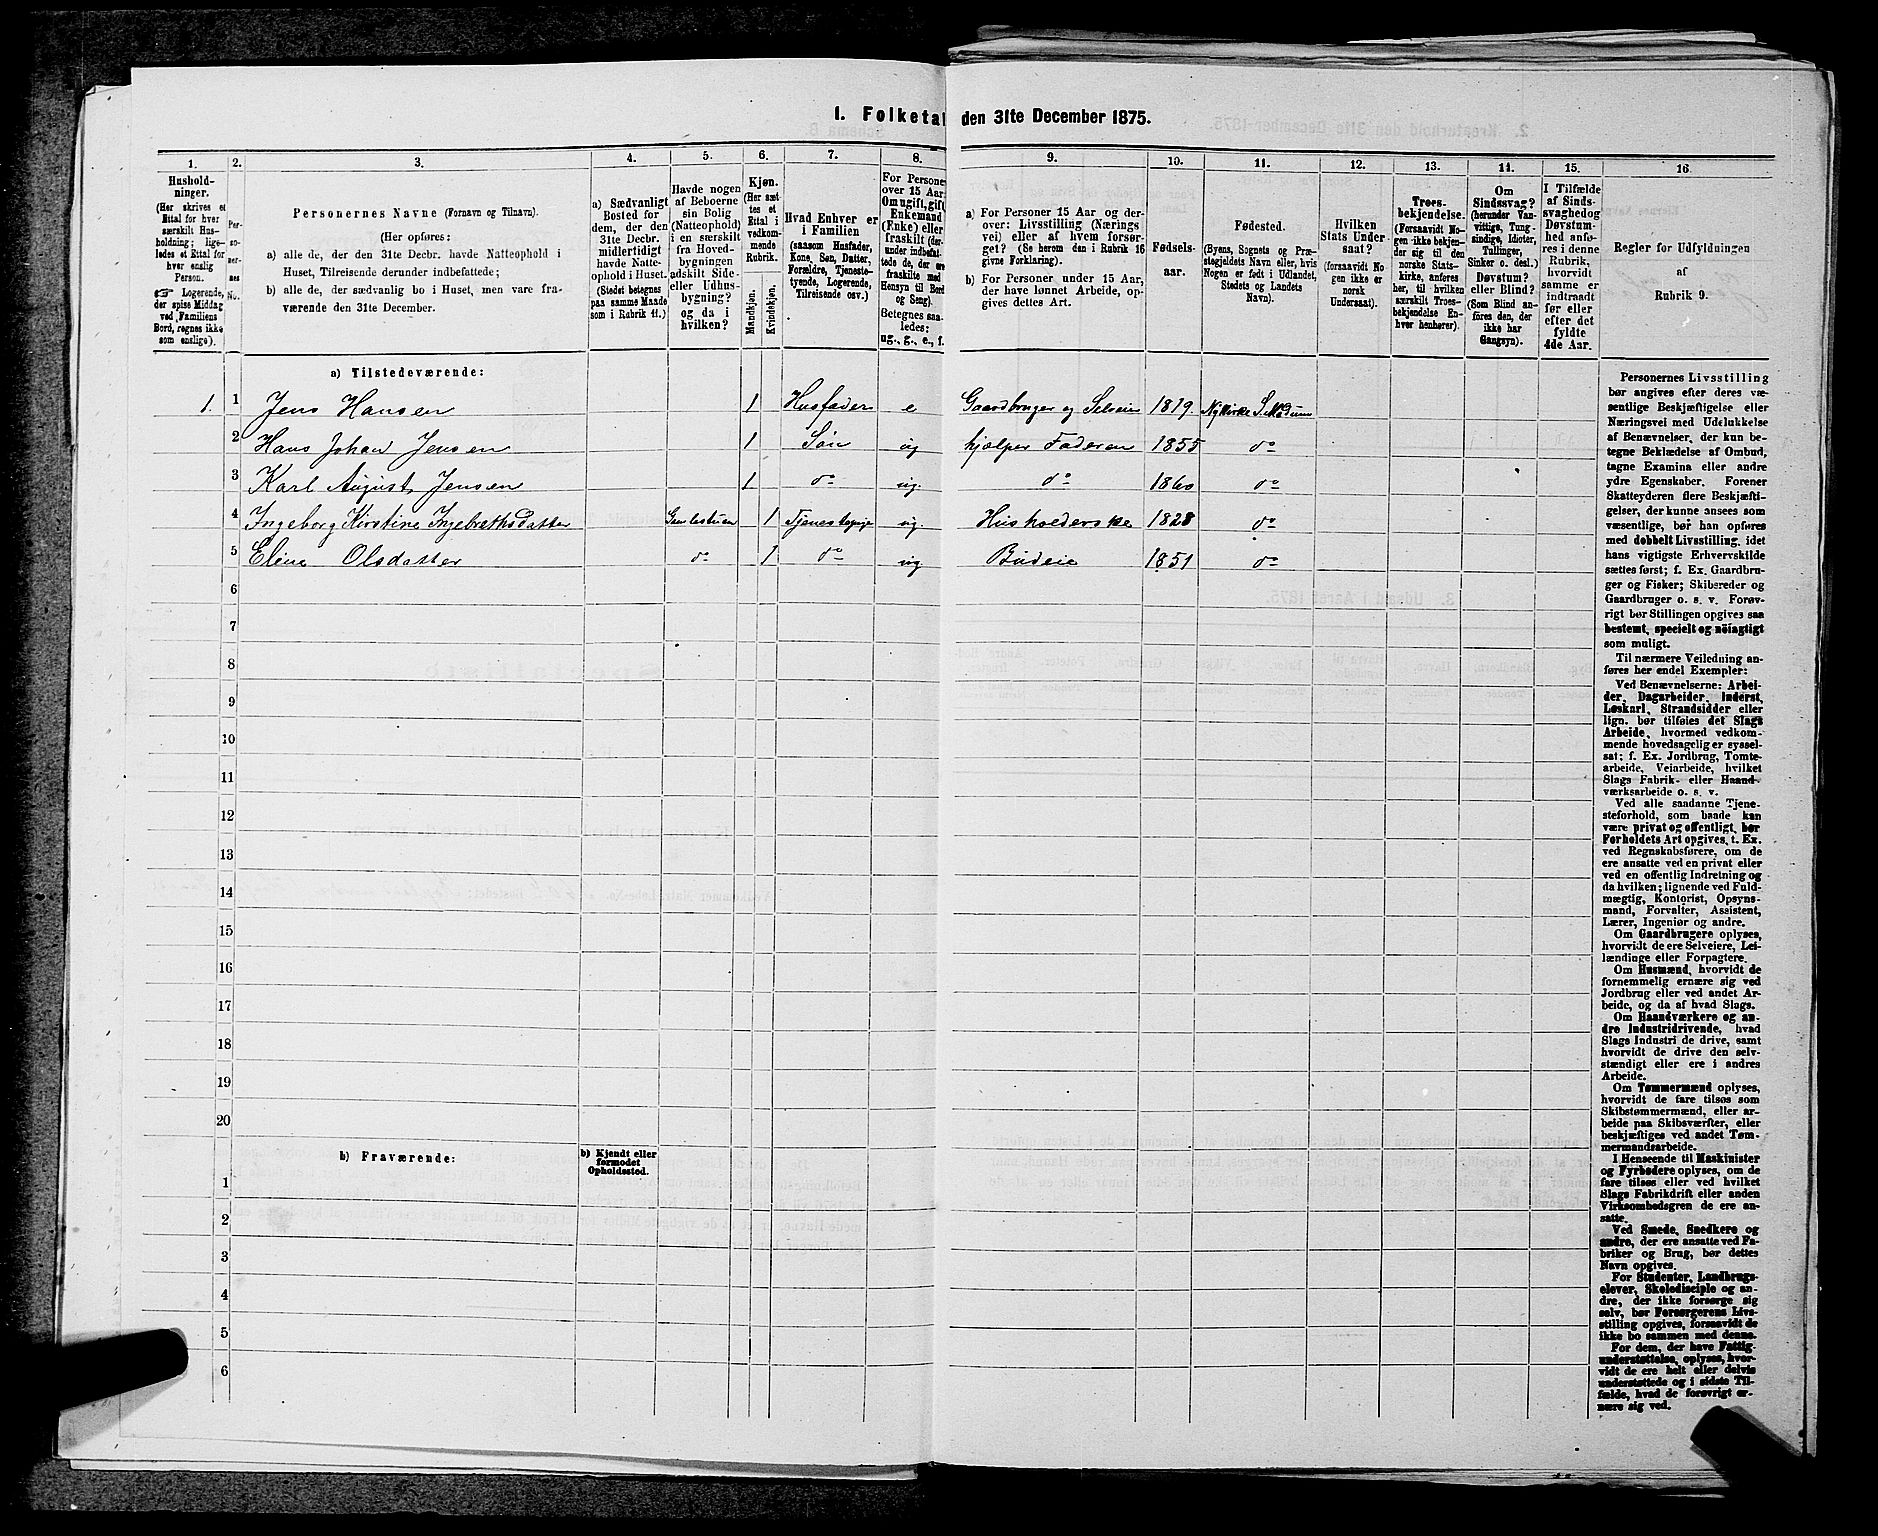 I. Folketal den 31te December 1875.
1. 2. 3. 4. 5. 6. 7. 8. 9. 10. 11. 12. 13. 14. 15. 16.
Husholdninger.
(Her skrives et
Ettal for hver
særskilt Husholdning; ligeledes
et Ettal for
hver enslig
Person.
☞ Logerende,
der spise Middag
ved Familiens
Bord, regnes ikke
som enslige).
Personernes No.
Personernes Navne (Fornavn og Tilnavn).
(Her opføres:
a) alle de, der den 31te Decbr. havde Natteophold i
Huset, Tilreisende derunder indbefattede;
b) alle de, der sædvanlig bo i Huset, men vare fraværende
den 31te December.
a) Sædvanligt
Bosted for
dem, der den
31te Decbr.
midlertidigt
havde Natteophold
i Huset.
(Stedet betegnes
paa samme Maade
som i Rubrik 11.)
Havde nogen
af Beboerne
sin Bolig
(Natteophold)
i en særskilt
fra Hovedbygningen
adskilt Side-
eller Udhusbygning?
og da i
hvilken?
Kjøn.
(Her sættes
et
Ettal i
vedkommende
Rubrik.
Mandkjøn.
Kvindekjøn.
Hvad Enhver er
i Familien
(saasom Husfader,
Kone, Søn, Datter,
Forældre, Tjenestetyende,
Logerende,
Tilreisende osv.)
For Personer
over 15 Aar:
Om ugift, gift,
Enkemand
(Enke) eller
fraskilt (derunder
indbefattede
de, der ere
fraskilte med
Hensyn til Bord
og Seng).
Betegnes saaledes:
ug., g., e., f.
a) For Personer 15 Aar og derover:
Livsstilling (Næringsvei)
eller af hvem forsørget?
(Se herom den i Rubrik 16
givne Forklaring).
b) For Personer under 15 Aar,
der have lønnet Arbeide, opgives
dettes Art.
Fødselsaar.
Fødested.
(Byens, Sognets og Præstegjeldets
Navn eller, hvis
Nogen er født i Udlandet,
Stedets og Landets
Navn).
Hvilken
Stats Undersaat?
(forsaavidt Nogen
ikke er
norsk
Undersaat).
Troesbekjendelse.
(Forsaavidt Nogen
ikke bekjender
sig til den
norske Statskirke,
anføres
her, til hvilken
særskilt Troesbekjendelse
Enhver
henhører).
Om
Sindssvag?
(herunder Vanvittige,
Tungsindige,
Idioter,
Tullinger,
Sinker o. desl.)
Døvstum?
eller Blind?
(Som Blind anføres
den, der
ikke har
Gangsyn).
I Tilfælde
af Sindssvaghed
og
Døvstumhed
anføres
i denne
Rubrik,
hvorvidt
samme er
indtraadt
før eller
efter det
fyldte
4de Aar.
Regler for Udfyldningen
af
Rubrik 9.
a) Tilstedeværende:
1. 1 Jens Hansen 1 Husfader e Gaardbruger og Selveier 1819 Nykirke S. Modum
2 Hans Johan Jensen 1 Søn ug hjælper Faderen 1855 do
3 Karl August Jensen 1 do ug. do 1860 do
4 Ingeborg Kirstine Ingebrethsdatter 1 Tjenestepige ug. Husholderske 1828 do
5 Eline Olsdatter do 1 do ug. Budeie 1851 do
6
7
8
9
10
11
12
13
14
15
16
17
18
19
20
b) Fraværende:
b) Kjendt eller
formodet
Opholdssted.
1
2
3
4
5
6
Personernes Livsstilling
bør angives efter deres væsentlige
Beskjæftigelse eller
Næringsvei med Udelukkelse
af Benævnelser, der kun betegne
Beklædelse af Ombud,
tagne Examina eller andre
ydre Egenskaber. Forener
Skatteyderen flere Beskjæftigelser,
der kunne ansees som
væsentlige, bør han opføres
med dobbelt Livsstilling, idet
hans vigtigste Erhvervskilde
sættes først; f. Ex. Gaardbruger
og Fisker; Skibsreder og
Gaardbruger o. s. v. Forøvrigt
bør Stillingen opgives saa
bestemt, specielt og nöiagtigt
som muligt.
Til nærmere Veiledning anføres
her endel Exempler:
Ved Benævnelserne: Arbeider,
Dagarbeider, Inderst,
Løskarl, Strandsidder eller
lign. bør tilføies det Slags
Arbeide, hvormed vedkommende
hovedsagelig er sysselsat;
f. Ex. Jordbrug, Tomtearbeide,
Veiarbeide, hvilket
Slags Fabrik- eller Haandværksarbeide
o. s. v.
Ved alle saadanne Tjenesteforhold,
som baade kan
være privat og offentligt, bør
Forholdets Art opgives, t. Ex.
ved Regnskabsførere, om de
ere ansatte ved en privat eller
ved en offentlig Indretning og
da hvilken; lignende ved Fuldmægtig,
Kontorist, Opsynsmand,
Forvalter, Assistent,
Lærer, Ingeniør og andre.
Om Gaardbrugere oplyses,
hvorvidt de ere Selveiere, Leilændinge
eller Forpagtere.
Om Husmænd, hvorvidt de
fornemmelig ernære sig ved
Jordbrug eller ved andet Arbeide,
og da af hvad Slags.
Om Haandværkere og andre
Industridrivende, hvad
Slags Industri de drive, samt
hvorvidt de drive den selvstændigt
eller ere i andres
Arbeide.
Om Tømmermænd oplyses,
hvorvidt de fare tilsøs som
Skibstømmermænd, eller arbeide
paa Skibsværfter, eller
beskjæftiges ved andet Tømmermandsarbeide.
I Henseende til Maskinister
og Fyrbødere oplyses, om de
fare tilsøs eller ved hvilket
Slags Fabrikdrift eller anden
Virksomhedsgren de ere ansatte.
Ved Smede, Snedkere og
andre, der ere ansatte ved Fabriker
og Brug, bør dettes
Navn opgives.
For Studenter, Landbrugselever,
Skoledisciple og andre,
der ikke forsørge sig
selv, bør Forsørgerens Livsstilling
opgives, forsaavidt de
ikke bo sammen med denne.
For dem, der have Fattigunderstøttelse,
oplyses, hvorvidt
de ere helt eller delvis
understøttede og i sidste Tilfælde,
hvad de forøvrigt ernære
sig ved.